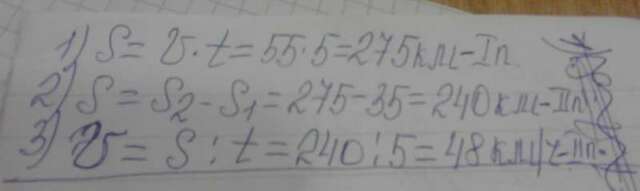 1) S = v · t = 55 · 5 = 275 км – I п.
2) S = S₂ – S₁ = 275 – 35 = 240 км – II п.
3) v = S : t = 240 : 5 = 48 км/ч – II п.